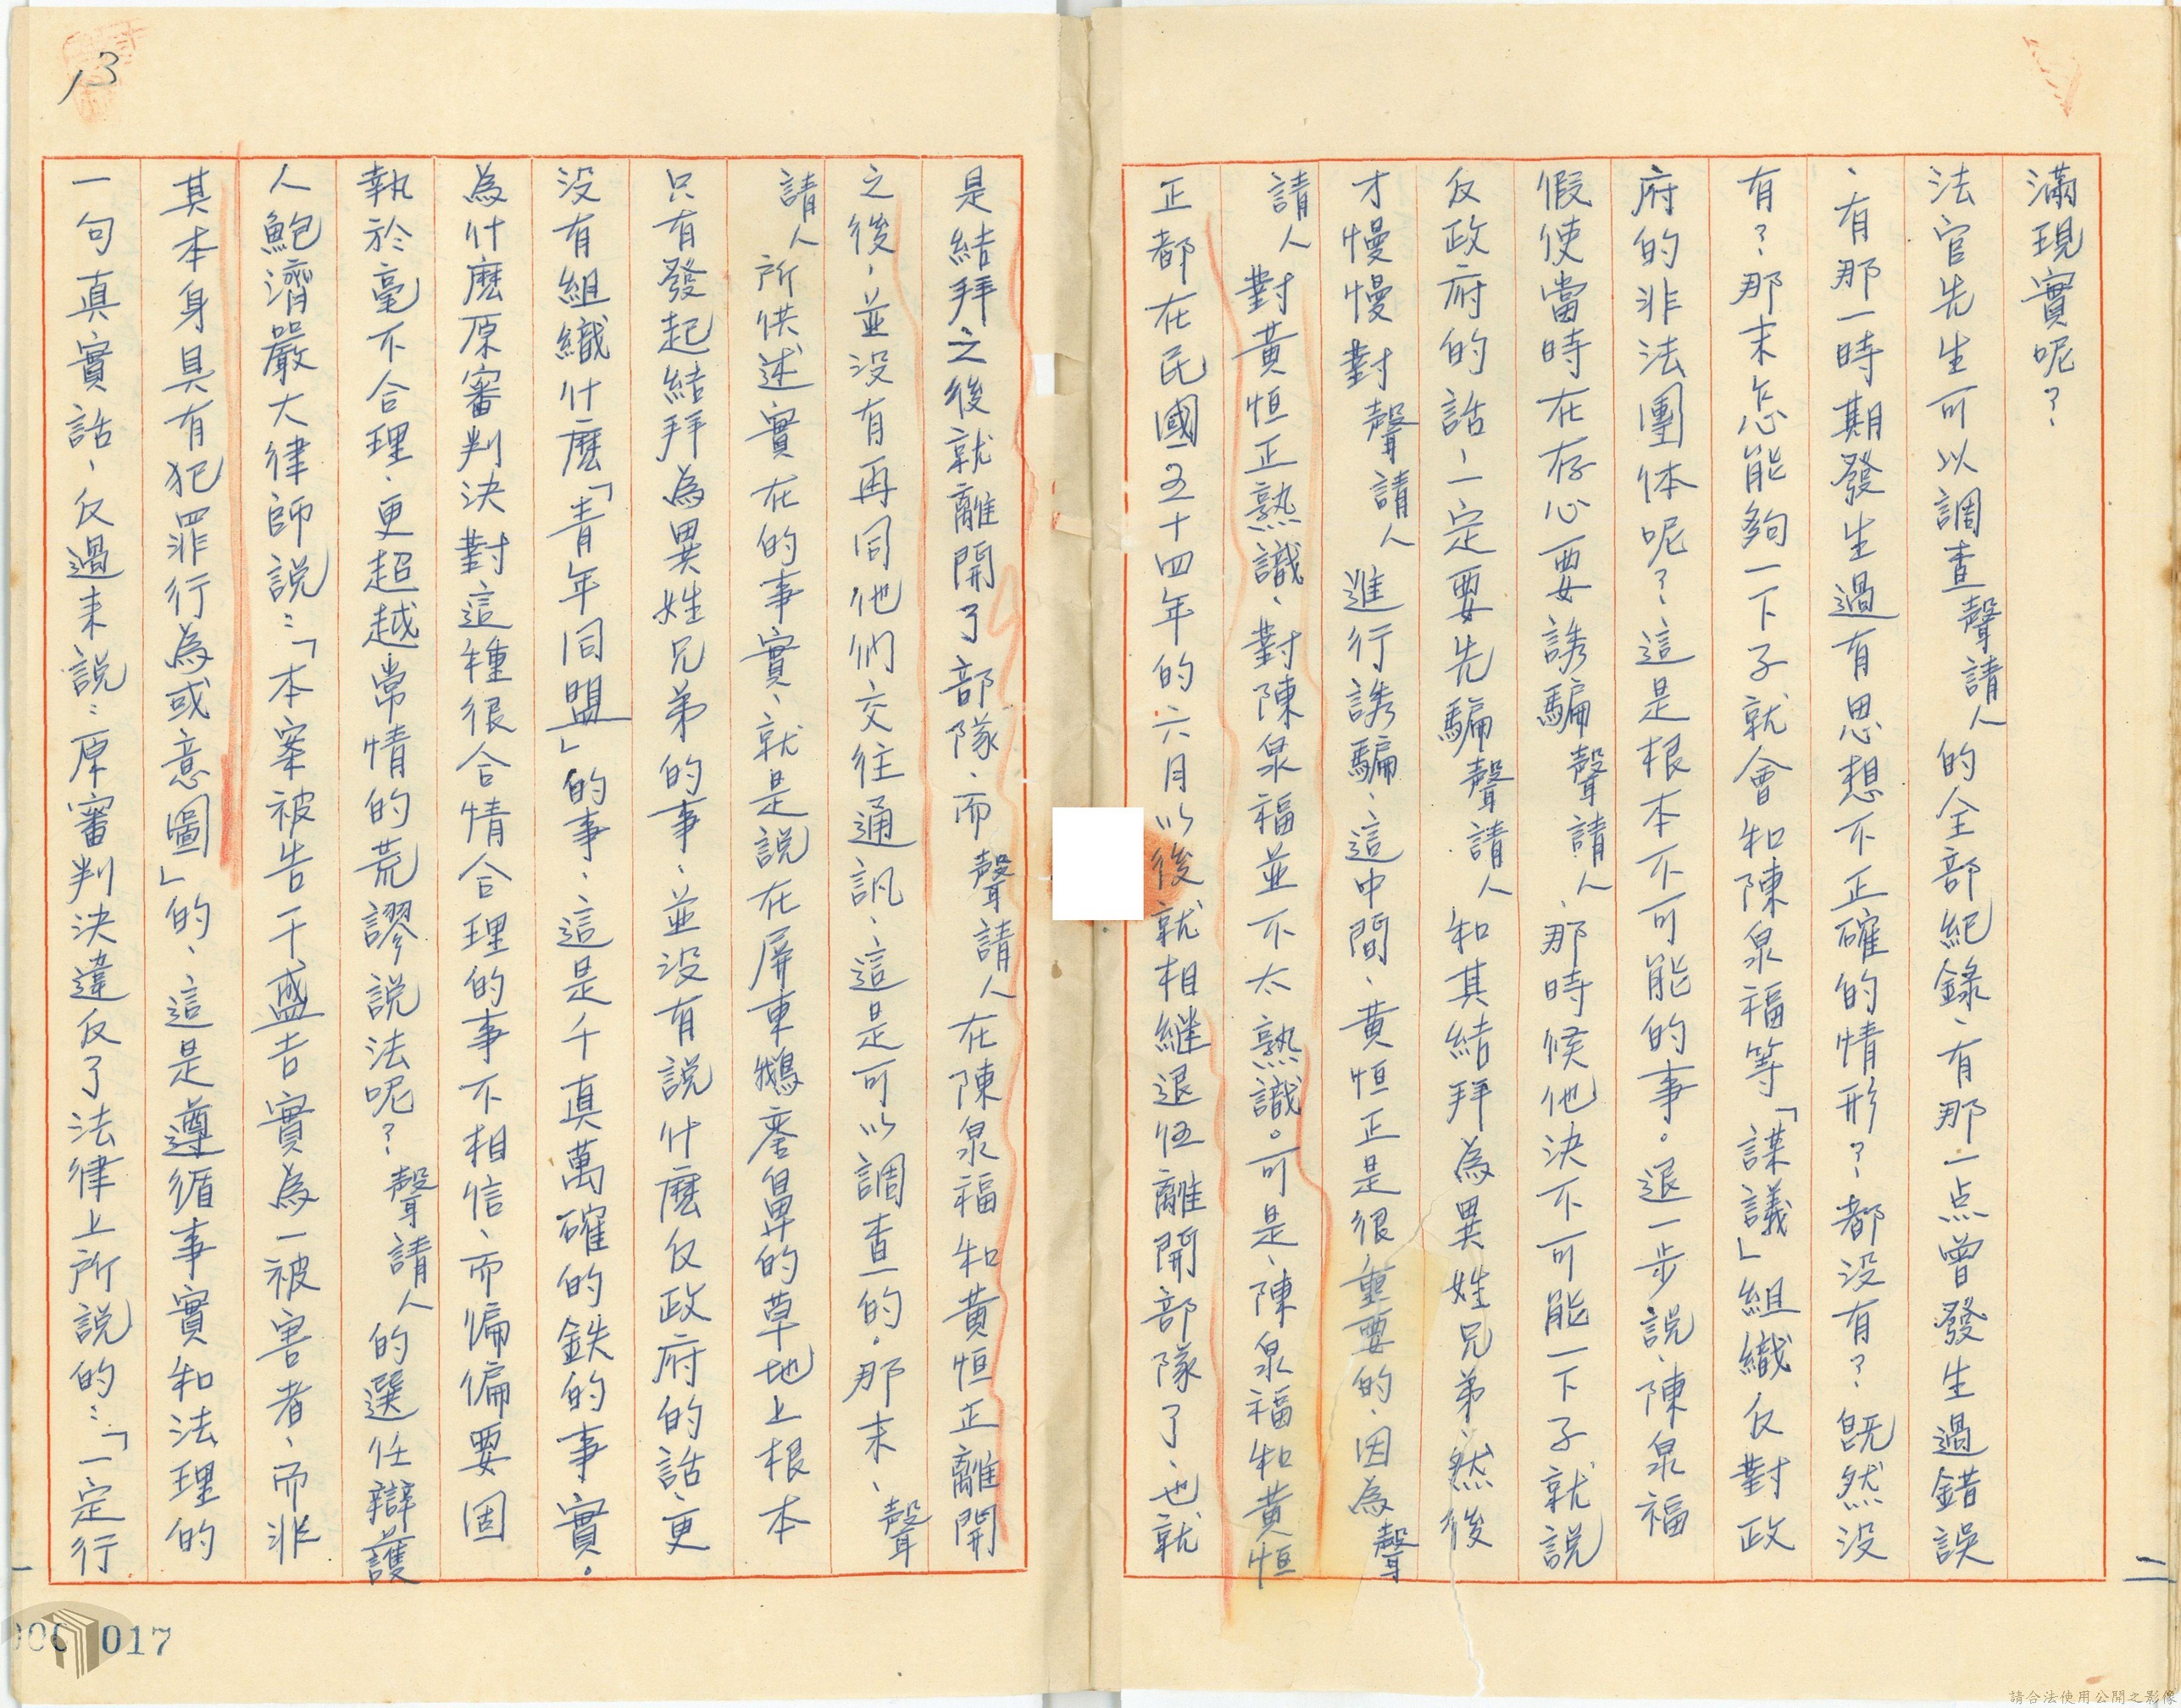 滿現實呢？
法官先生可以調查聲請人的全部紀錄、有那一点曾發生過錯誤
、有那一時期發生過有思想不正確的情形？、都没有？既然没
有？、那末怎能夠一下子就會和陳泉福等「謀議」組織反對政
府的非法團体呢？、這是根本不可能的事。退一步說、陳泉福
假使當時在存心要誘騙聲請人、那時候他決不可能一下子就説
反政府的話、一定要先騙聲請人和其結拜為異姓兄弟、然後
才慢慢對聲請人進行誘騙、這中間、黄恒正是很重要的、因為聲
請人對黄恒正熟識、對陳泉福並不太熟識。可是、陳泉福和黄恒
正都在民國五十四年的六月以後就相継退伍離開部隊了、也就
是結拜之後就離開了部隊、而聲請人在陳泉福和黄恒正離開
之後、並没有再同他們交往通訊、這是可以調查的。那末、聲
請人所供述實在的事實、就是説在屏東鵝鑾鼻的草地上根本
只有發起結拜為異姓兄弟的事、並没有説什麽反政府的話、更
没有組織什麽「青年同盟」的事、這是千真萬確的鉄的事實。
為什麽原審判決對這種很合情合理的事不相信、而偏偏要固
執於毫不合理、更超越常情的荒謬説法呢？聲請人的選任辯護
人鮑濟嚴大律師説：「本案被告于盛吉實為一被害者、而非
其本身具有犯罪行為或意圖」的、這是遵循事實和法理的
一句真實話、反過来説：原審判決違反了法律上所説的：「一定行
13
二
017
請合法使用公開之影像